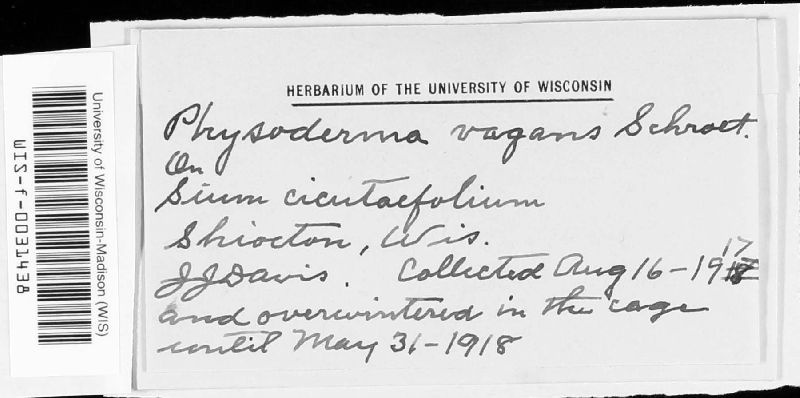 HERBARIUM OF THE UNIVERSITY OF WISCONSIN
Physoderma vagans Schroet.
On
Sium cicutaefolium
Shiocton, Wis.
J J Davis. Collected Aug 16-1917
and overwintered in the cage
until May 31-1918
University of Wisconsin-Madison (WIS)
WIS-f-0031438